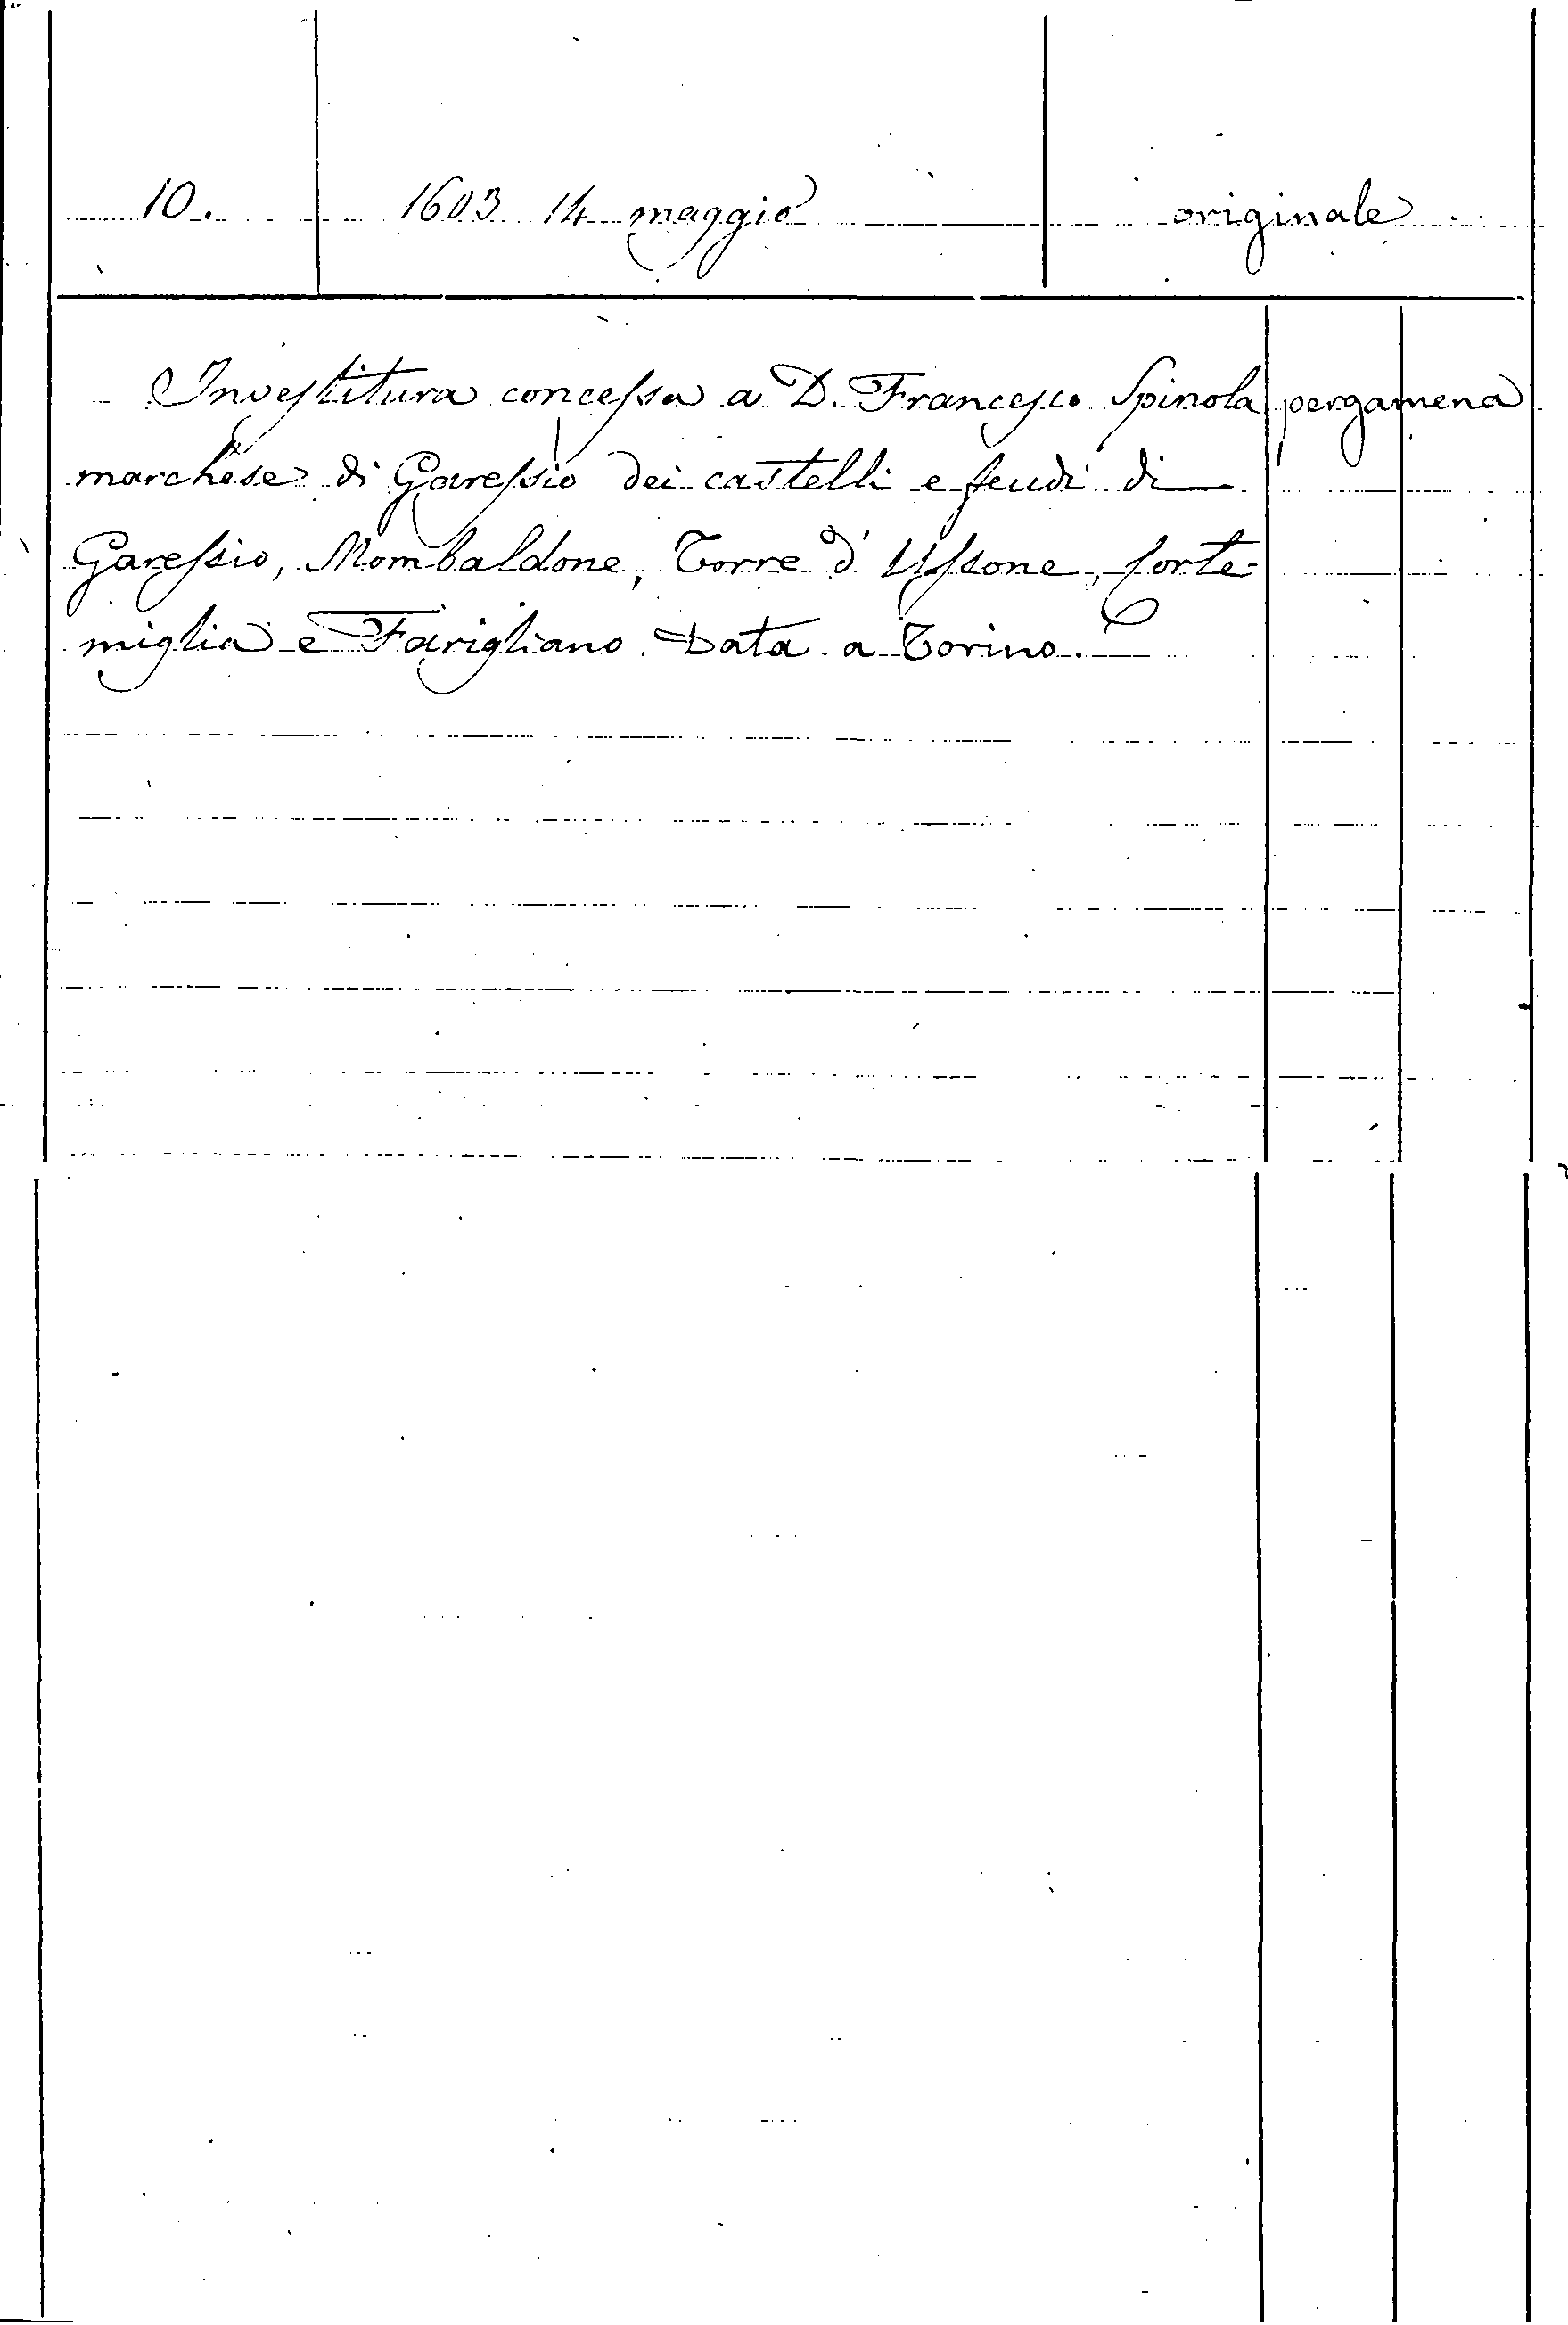 10. 1603 14 maggio originale
Investitura concessa a D. Francesco Spinola pergamena
marchese di Garessio dei castelli e feudi di
Garessio, Mombaldone, Torre d'Ussone, Corte-
miglia e Farigliano. Data a Torino.